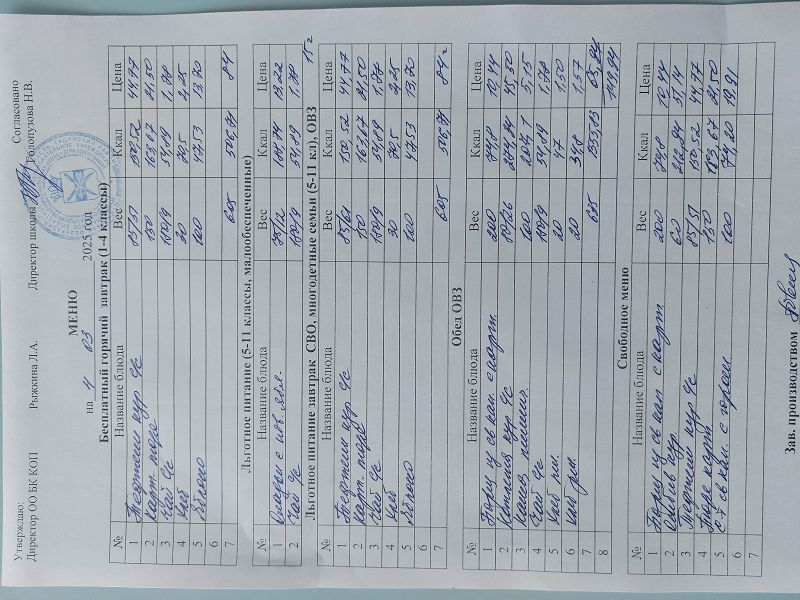 Утверждаю:
Согласовано
Директор ОО БК КОП Рыжкина Л.А. Директор школы Голопузова Н.В.
МЕНЮ
на 4 03 2025 год
Бесплатный горячий завтрак (1-4 классы)
№ Название блюда Вес Ккал Цена
1 Тефтели кур ч/с 85/51 150,52 44,77
2 карт. пюре 150 163,67 21,50
3 Чай ч/с 180/9 34,89 1,78
4 хлеб 30 70,5 2,25
5 Яблоко 100 47,53 13,70
6
7 605 84
Льготное питание (5-11 классы, малообеспеченные)
№ Название блюда Вес Ккал Цена
1 75/12 13,22
2 Чай ч/с 180/9 34,89 1,78
15 г
Льготное питание завтрак СВО, многодетные семьи (5-11 кл), ОВЗ
№ Название блюда Вес Ккал Цена
1 Тефтели кур ч/с 85/51 150,52 44,77
2 карт. пюре 150 163,67 21,50
3 Чай ч/с 180/9 34,89 1,78
4 хлеб 30 70,5 2,25
5 Яблоко 100 47,53 13,70
6
7 605 84
Обед ОВЗ
№ Название блюда Вес Ккал Цена
1 Борщ из св кап с карт. 200 74,8 10,44
2 Котлета кур ч/с 45,50
3 Каша 100 5,15
4 Чай ч/с 180/9 34,89 1,78
5 хлеб 20 47 1,50
6 хлеб рж. 20 34,8 1,57
7
8 149,94
Свободное меню
№ Название блюда Вес Ккал Цена
1 Борщ из св кап с карт 200 74,8 10,44
2 кур 60
3 Тефтели кур ч/с 85/51 150,52 44,77
4 Пюре карт. 150 163,67 21,50
5 С-т св кап. с 100 19,91
6
7
Зав. производством